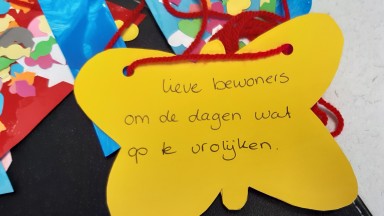 lieve bewoners
om de dagen wat
op te vrolijken.